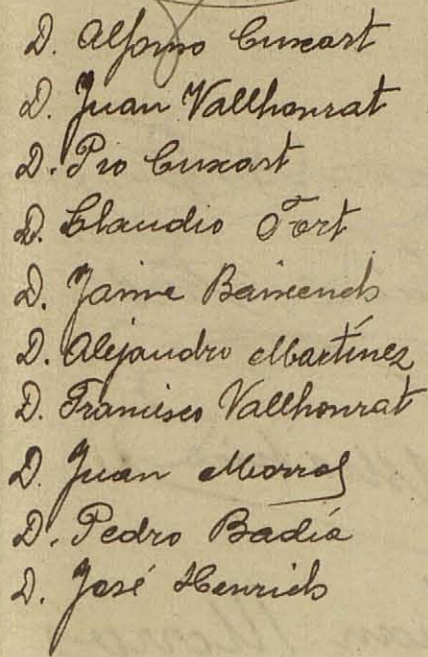 D. Alfonso Cuxart
D. Juan Vallhonrat
D. Pio Cuxart
D. Claudio Fort
D. Jaime Baixench
D. Alejandro Martínez
D. Francisco Vallhonrat
D. Juan Morral
D. Pedro Badía
D. José Henrich